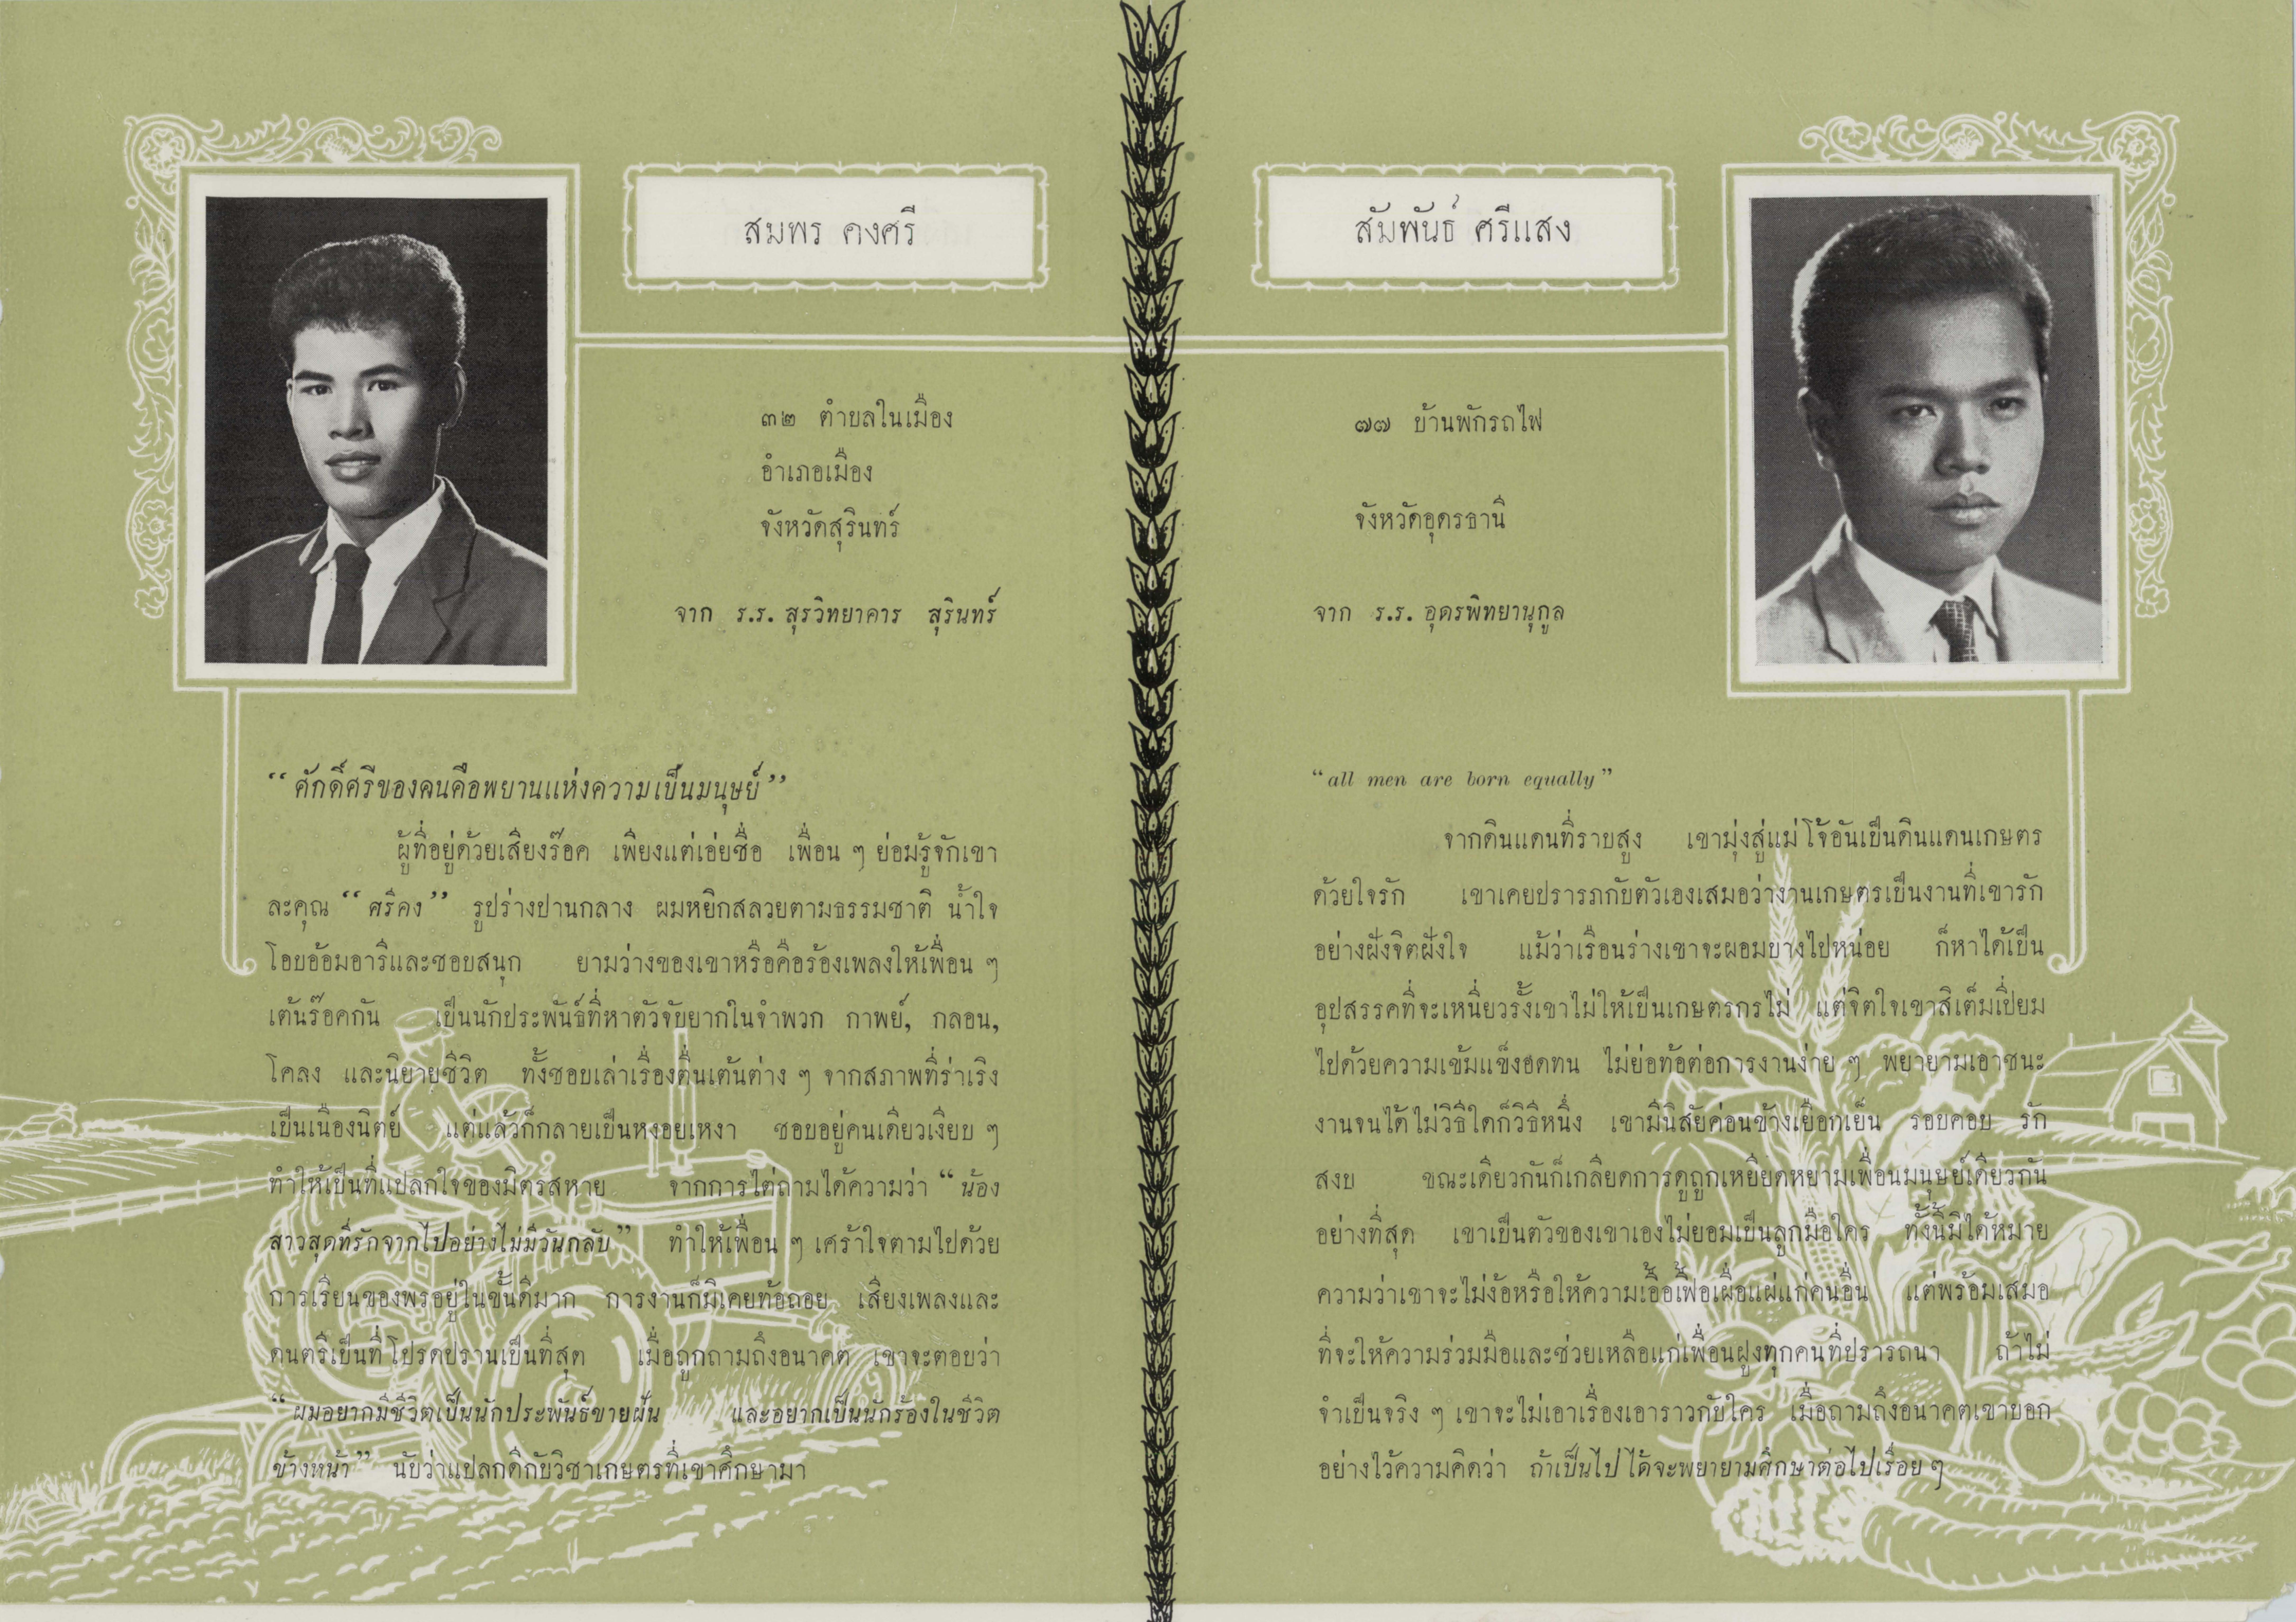 สมพร คงศรี
๓๒ ตำบลในเมือง
อำเภอเมือง
จังหวัดสุรินทร์
จาก ร.ร. สุรวิทยาคาร สุรินทร์
“ ศักดิ์ศรีของคนคือพยานแห่งความเป็นมนุษย์ ”
ผู้ที่อยู่ด้วยเสียงร๊อค เพียงแต่เอ่ยชื่อ เพื่อน ๆ ย่อมรู้จักเขา
ละคุณ “ ศรีคง ” รูปร่างปานกลาง ผมหยิกสลวยตามธรรมชาติ น้ำใจ
โอบอ้อมอารีและชอบสนุก ยามว่างของเขาหรือคือร้องเพลงให้เพื่อน ๆ
เต้นร๊อคกัน เป็นนักประพันธ์ที่หาตัวจับยากในจำพวก กาพย์, กลอน,
โคลง และนิยายชีวิต ทั้งชอบเล่าเรื่องตื่นเต้นต่าง ๆ จากสภาพที่ร่าเริง
เป็นเนืองนิตย์ แต่แล้วก็กลายเป็นหงอยเหงา ชอบอยู่คนเดียวเงียบ ๆ
ทำให้เป็นที่แปลกใจของมิตรสหาย จากการไต่ถามได้ความว่า “ น้อง
สาวสุดที่รักจากไปอย่างไม่มีวันกลับ ” ทำให้เพื่อน ๆ เศร้าใจตามไปด้วย
การเรียนของพรอยู่ในขั้นดีมาก การงานก็มิเคยท้อถอย เสียงเพลงและ
ดนตรีเป็นที่โปรดปรานเป็นที่สุด เมื่อถูกถามถึงอนาคต เขาจะตอบว่า
“ ผมอยากมีชีวิตเป็นนักประพันธ์ขายฝัน และอยากเป็นนักร้องในชีวิต
ข้างหน้า ” นับว่าแปลกดีกับวิชาเกษตรที่เขาศึกษามา
สัมพันธ์ ศรีแสง
๗๗ บ้านพักรถไฟ
จังหวัดอุดรธานี
จาก ร.ร. อุดรพิทยานุกูล
“ all men are born equally ”
จากดินแดนที่ราบสูง เขามุ่งสู่แม่โจ้อันเป็นดินแดนเกษตร
ด้วยใจรัก เขาเคยปรารภกับตัวเองเสมอว่างานเกษตรเป็นงานที่เขารัก
อย่างฝังจิตฝังใจ แม้ว่าเรือนร่างเขาจะผอมบางไปหน่อย ก็หาได้เป็น
อุปสรรคที่จะเหนี่ยวรั้งเขาไม่ให้เป็นเกษตรกรไม่ แต่จิตใจเขาสิเต็มเปี่ยม
ไปด้วยความเข้มแข็งอดทน ไม่ย่อท้อต่อการงานง่าย ๆ พยายามเอาชนะ
งานจนได้ไม่วิธีใดก็วิธีหนึ่ง เขามีนิสัยค่อนข้างเยือกเย็น รอบคอบ รัก
สงบ ขณะเดียวกันก็เกลียดการดูถูกเหยียดหยามเพื่อนมนุษย์เดียวกัน
อย่างที่สุด เขาเป็นตัวของเขาเองไม่ยอมเป็นลูกมือใคร ทั้งนี้มิได้หมาย
ความว่าเขาจะไม่ง้อหรือให้ความเอื้อเฟื้อเผื่อแผ่แก่คนอื่น แต่พร้อมเสมอ
ที่จะให้ความร่วมมือและช่วยเหลือแก่เพื่อนฝูงทุกคนที่ปรารถนา ถ้าไม่
จำเป็นจริง ๆ เขาจะไม่เอาเรื่องเอาราวกับใคร เมื่อถามถึงอนาคตเขาบอก
อย่างไว้ความคิดว่า ถ้าเป็นไปได้จะพยายามศึกษาต่อไปเรื่อย ๆ